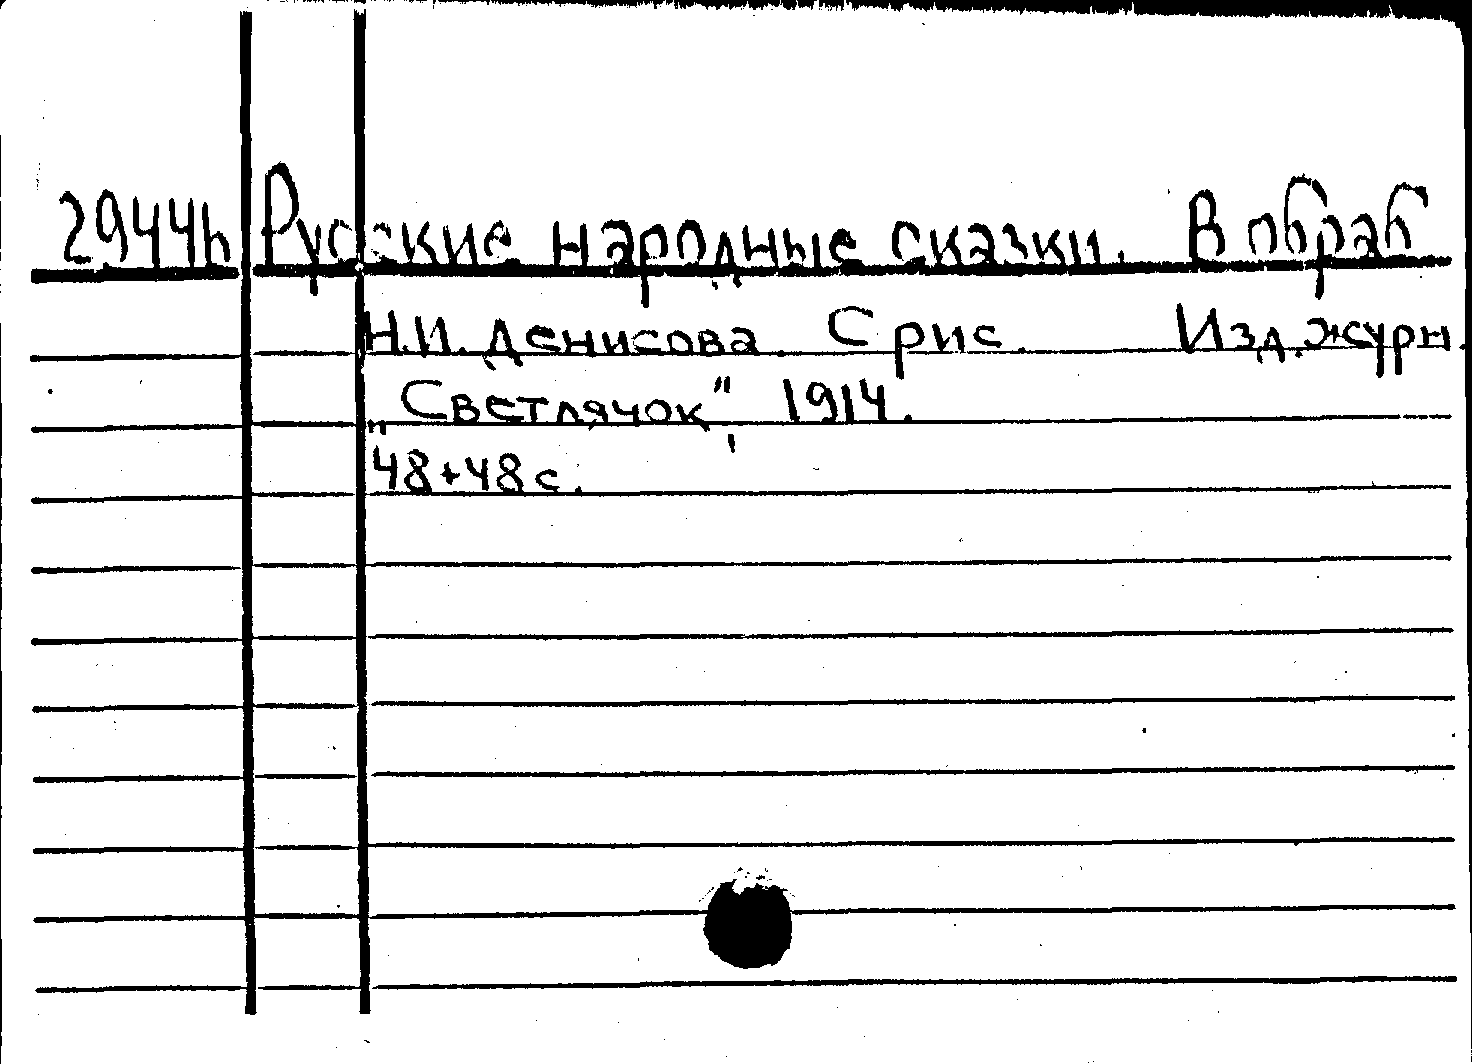 2944h Русские народные сказки. В обраб
Н.И. Денисова С рис. Изд. журн.
„Светлячок", 1914.
48+48 с.